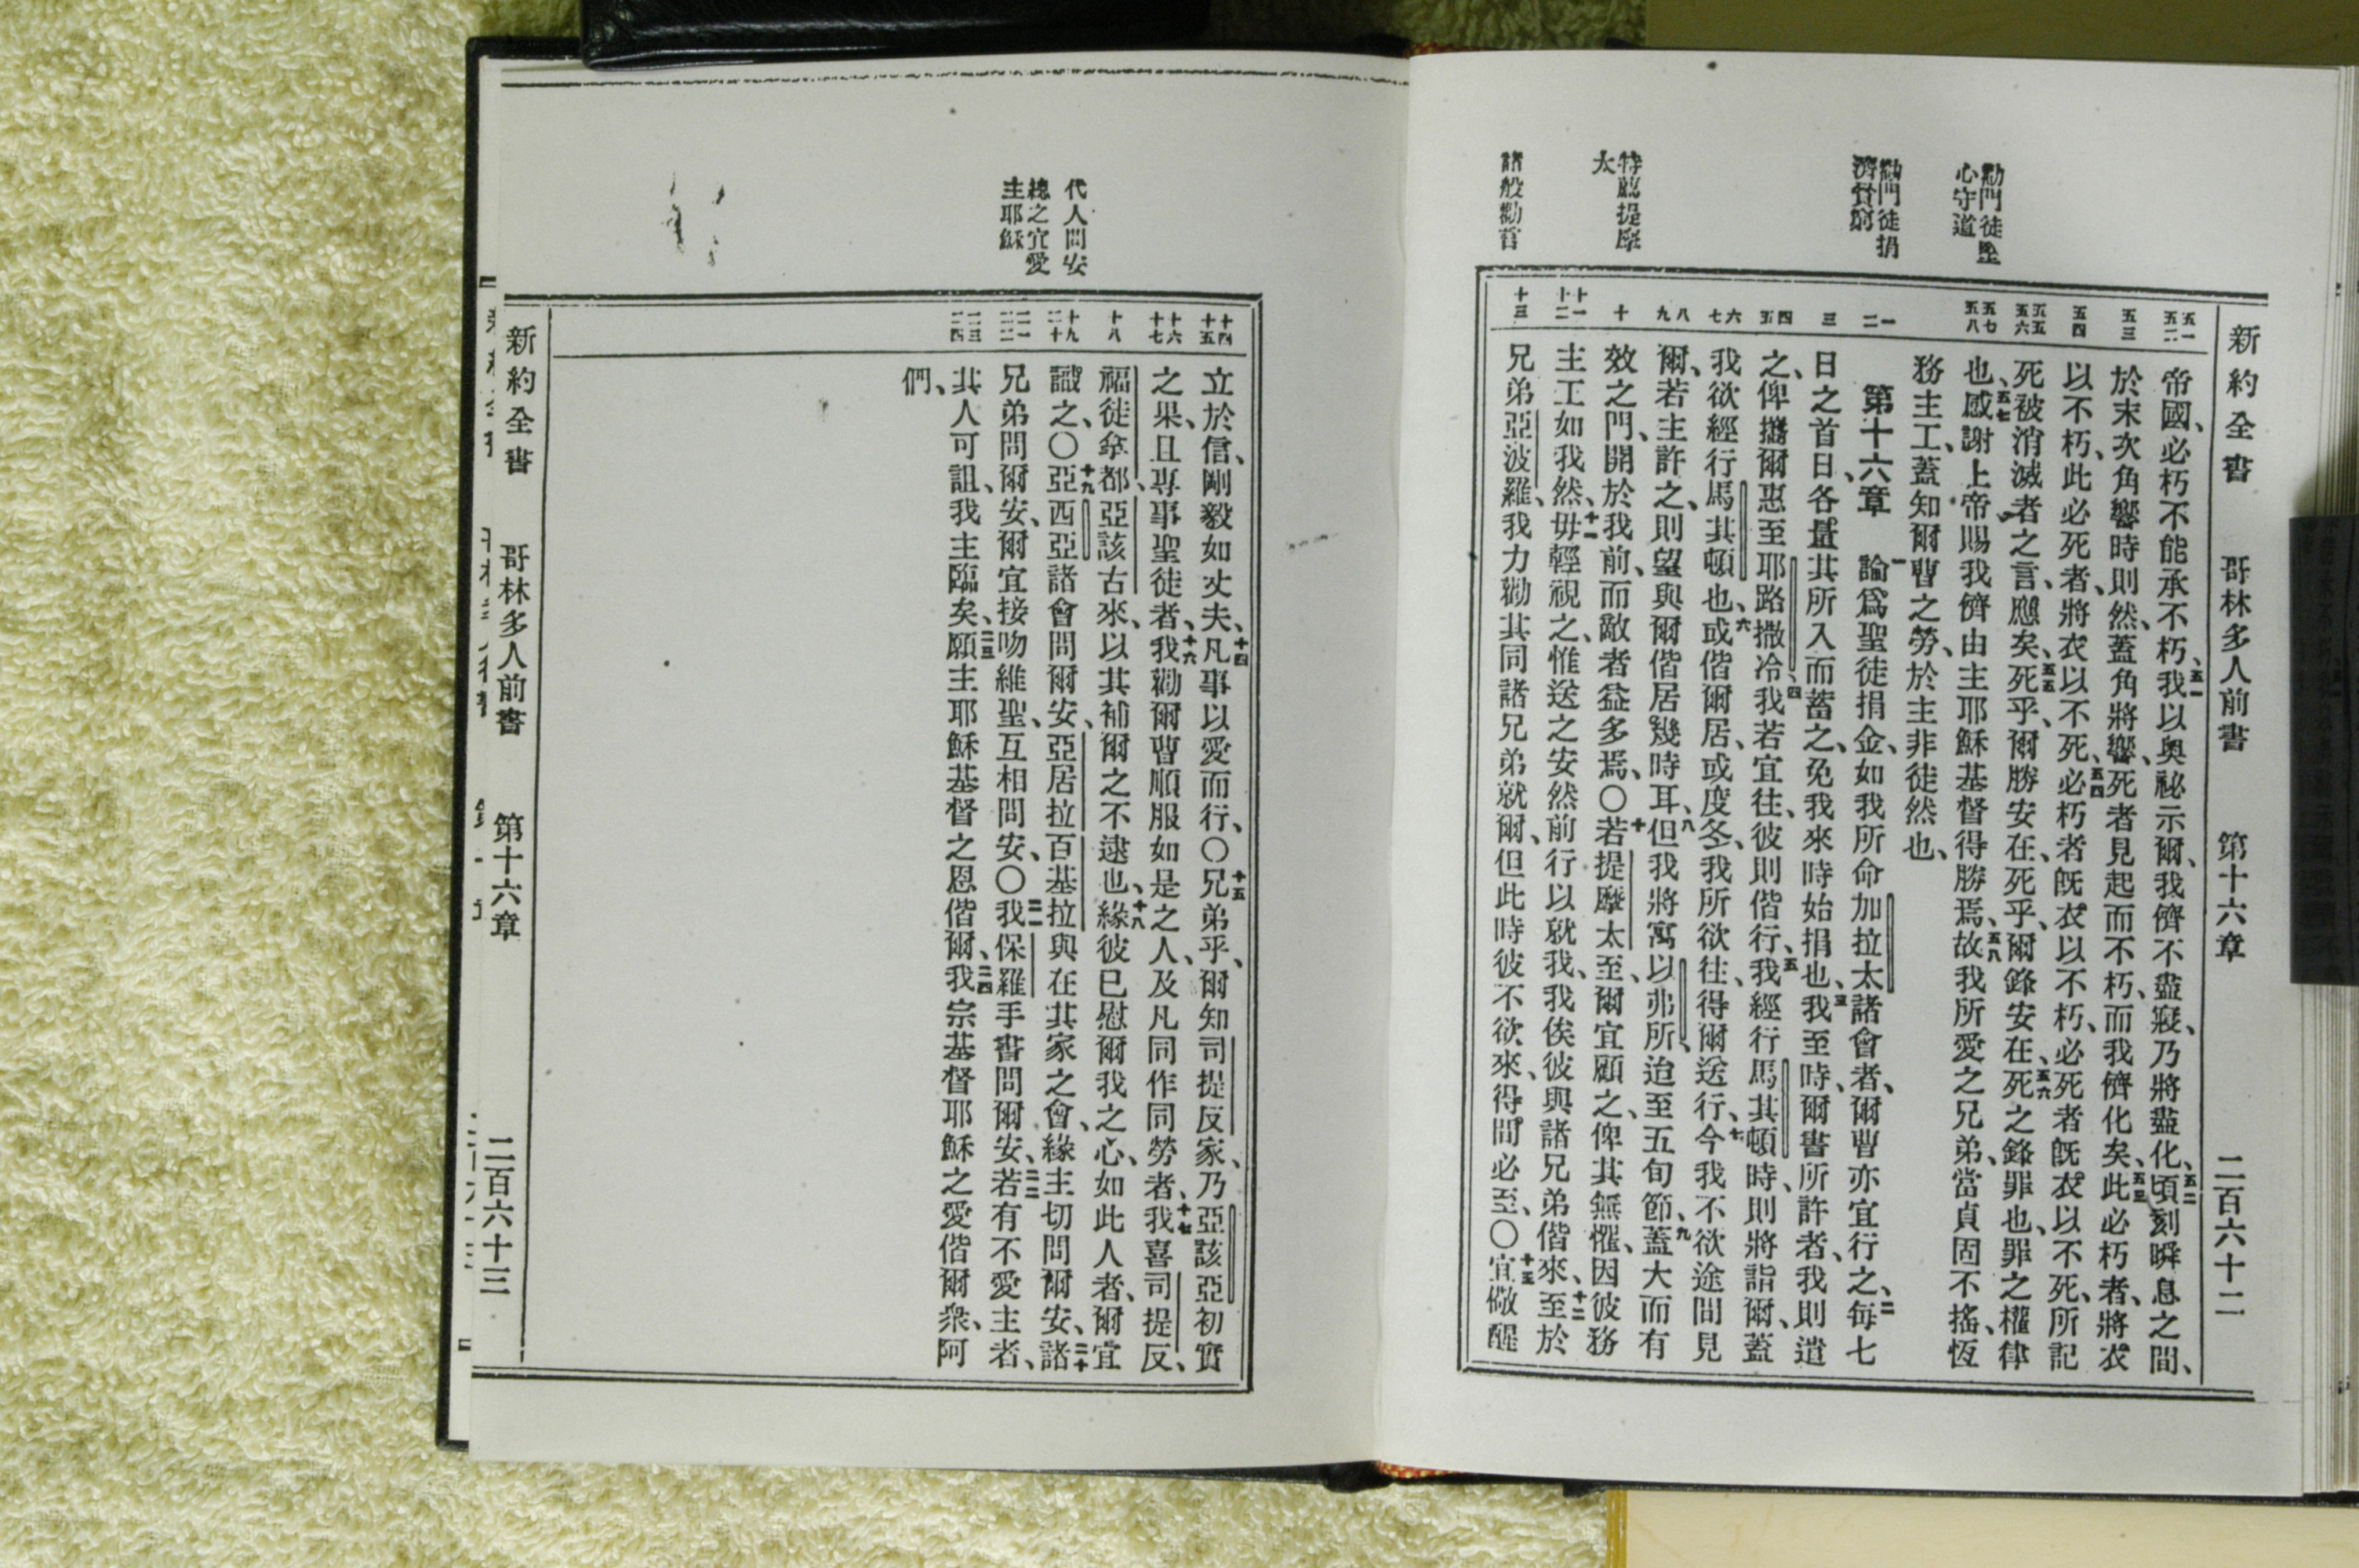 新約全書 哥林多人前書 第十六章 二百六十二
勸門徒堅
心守道
勸門徒捐
濟貧窮
特薦提摩
太
諸般勸言
五一
五二
五三
五四
五五
五六
五七
五八
一
二
三
四
五
六
七
八
九
十
十一
十二
十三
帝國、必朽不能承不朽、五一我以奧祕示爾、我儕不盡寢、乃將盡化、五二頃刻瞬息之間、
於末次角響時則然、蓋角將響、死者見起而不朽、而我儕化矣、五三此必朽者、將衣
以不朽、此必死者、將衣以不死、五四必朽者既衣以不朽、必死者既衣以不死、所記
死被消滅者之言、應矣、五五死乎、爾勝安在、死乎、爾鋒安在、五六死之鋒罪也、罪之權律
也、五七感謝上帝賜我儕由主耶穌基督得勝焉、五八故我所愛之兄弟、當貞固不搖、恆
務主工、蓋知爾曹之勞、於主非徒然也、
第十六章 一論爲聖徒捐金、如我所命加拉太諸會者、爾曹亦宜行之、二每七
日之首日、各量其所入而蓄之、免我來時始捐也、三我至時、爾書所許者、我則遣
之、俾攜爾惠至耶路撒冷、四我若宜往、彼則偕行、五我經行馬其頓時、則將詣爾、蓋
我欲經行馬其頓也、六或偕爾居、或度冬、我所欲往、得爾送行、七今我不欲途間見
爾、若主許之、則望與爾偕居幾時耳、八但我將寓以弗所、迨至五旬節、九蓋大而有
效之門、開於我前、而敵者益多焉、〇十若提摩太至、爾宜顧之、俾其無懼、因彼務
主工如我然、十一毋輕視之、惟送之安然前行以就我、我俟彼與諸兄弟偕來、十二至於
兄弟亞波羅、我力勸其同諸兄弟就爾、但此時彼不欲來、得間必至、〇十三宜儆醒
代人問安
總之宜愛
主耶穌
十四
十五
十六
十七
十八
十九
二十
二一
二二
二三
二四
立於信、剛毅如丈夫、十四凡事以愛而行、〇十五兄弟乎、爾知司提反家、乃亞該亞初實
之果、且專事聖徒者、十六我勸爾曹順服如是之人、及凡同作同勞者、十七我喜司提反、
福徒拿都、亞該古來、以其補爾之不逮也、十八緣彼已慰爾我之心、如此人者、爾宜
識之、〇十九亞西亞諸會問爾安、亞居拉百基拉與在其家之會、緣主切問爾安、二十諸
兄弟問爾安、爾宜接吻維聖、互相問安、〇二一我保羅手書問爾安、二二若有不愛主者、
其人可詛、我主臨矣、二三願主耶穌基督之恩偕爾、二四我宗基督耶穌之愛偕爾衆、阿
們、
新約全書 哥林多人前書 第十六章 二百六十三